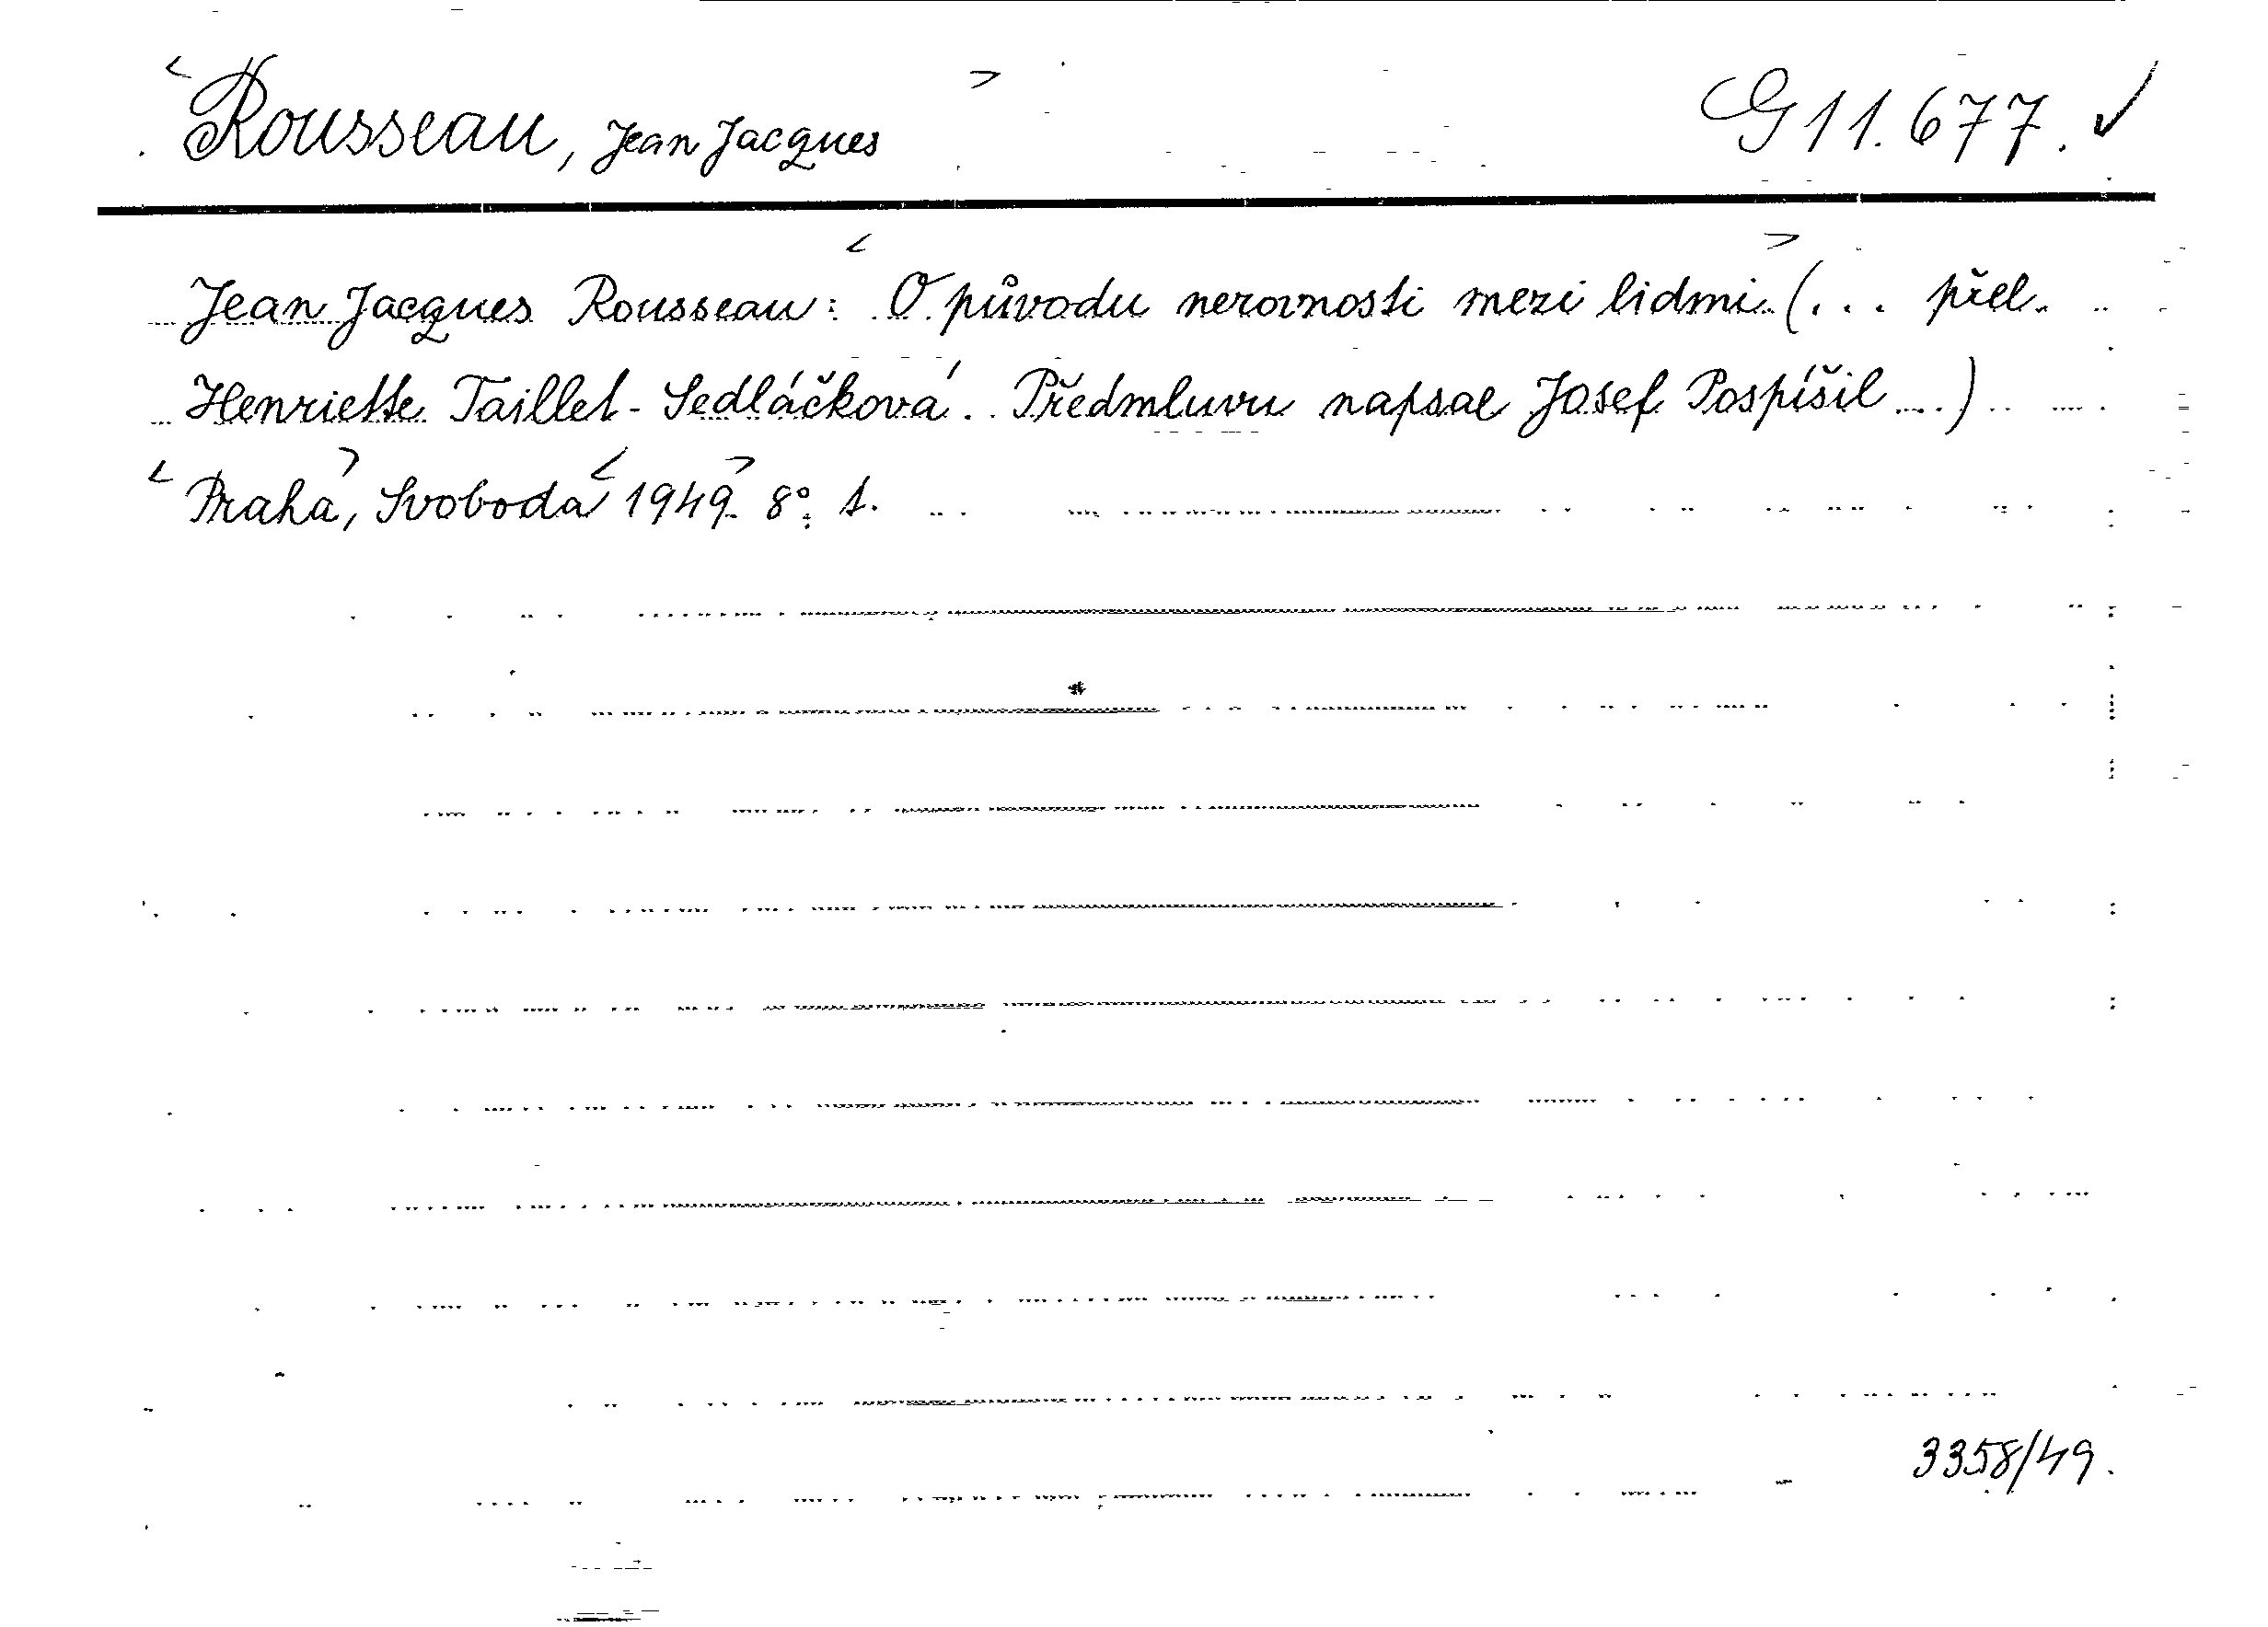 <Rousseau, Jean Jacques> G 11.677. ✓
Jean Jacques Rousseau: <O původu nerovnosti mezi lidmi> (... přel.
Henriette Taillet-Sedláčková. Předmluvu napsal Josef Pospíšil ...)
<Praha>, Svoboda <1949>. 8°. 1.
3358/49.